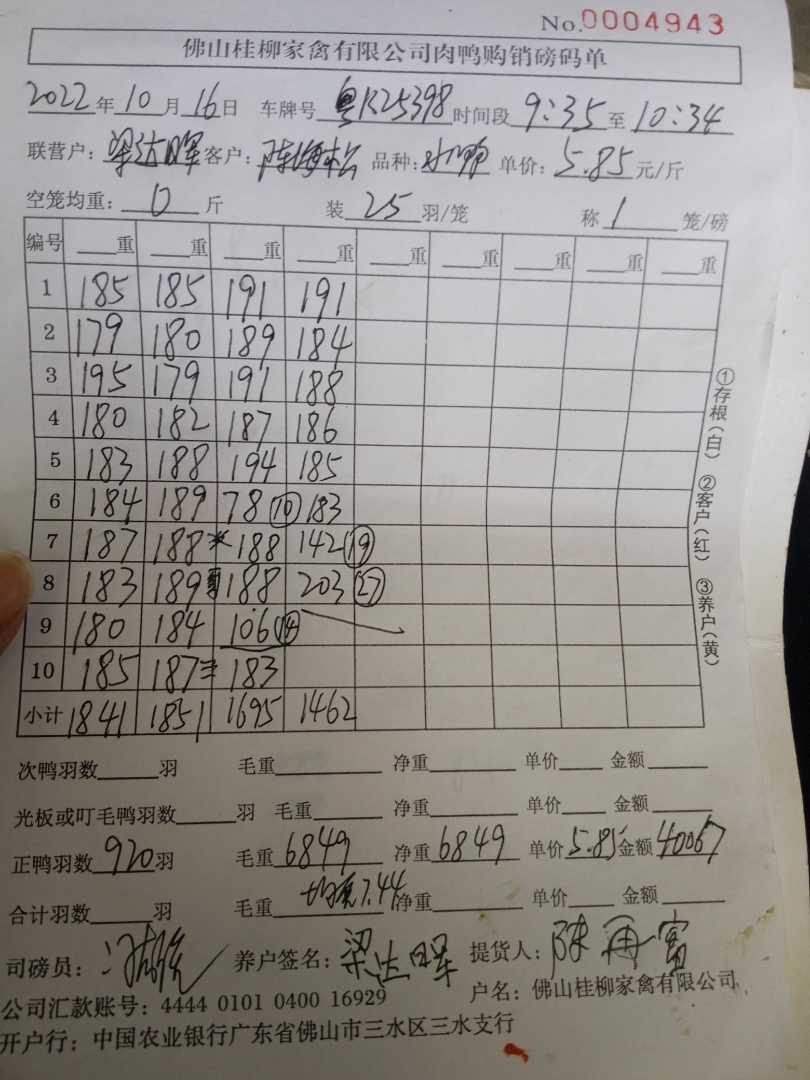 No.0004943
佛山桂柳家禽有限公司肉鸭购销磅码单
2022年10月16日 车牌号 粤R25398 时间段 9:35 至 10:34
联营户: 梁达晖 客户: 陈海松 品种: 单价: 5.85 元/斤
空笼均重: 0 斤 装 25 羽/笼 称 1 笼/磅
编号 重 重 重 重 重 重 重 重 重
1 185 185 191 191
2 179 180 189 184
3 195 179 191 188
4 180 182 187 186
5 183 188 194 185
6 184 189 78 ⑩ 183
7 187 188 188 142 ⑲
8 183 189 188 203 ㉗
9 180 184 106 ⑭
10 185 187 183
小计 1841 1851 1695 1462
次鸭羽数 羽 毛重 净重 单价 金额
光板或叮毛鸭羽数 羽 毛重 净重 单价 金额
正鸭羽数 920 羽 毛重 6849 净重 6849 单价 5.85 金额 40067
合计羽数 羽 毛重 均重7.44 净重 单价 金额
司磅员: 养户签名: 梁达晖 提货人: 陈再富
公司汇款账号: 4444 0101 0400 16929 户名: 佛山桂柳家禽有限公司
开户行: 中国农业银行广东省佛山市三水区三水支行
①存根(白) ②客户(红) ③养户(黄)